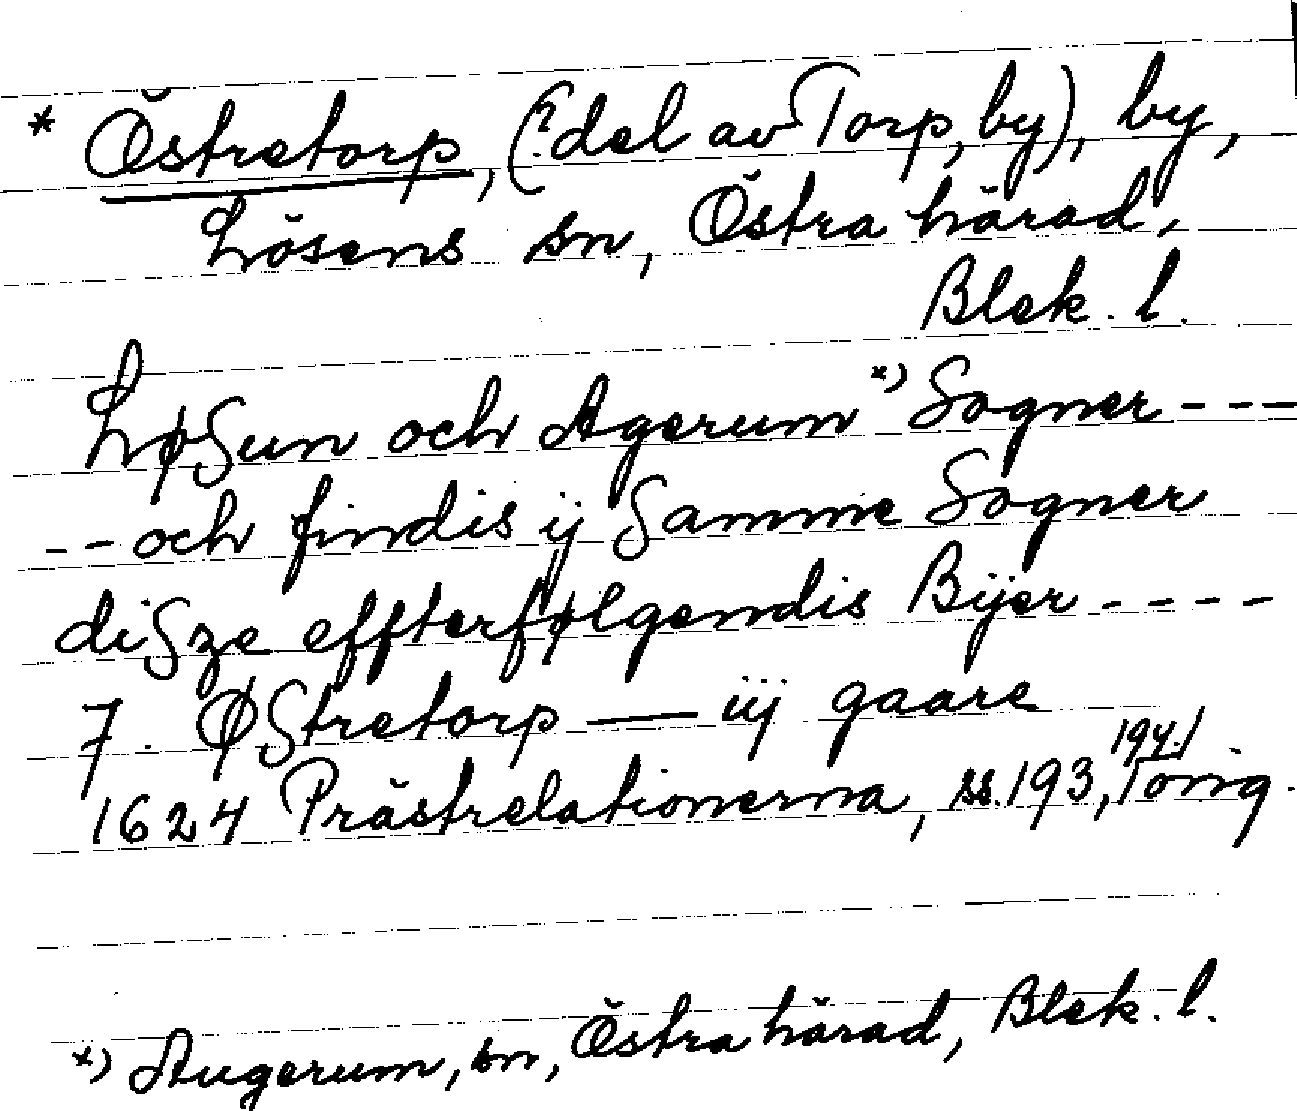 * Östretorp, (?del av Torp, by), by,
Lösens sn, Östra härad,
Blek. l.
Løsun och Agerum *) Sogner ---
-- och findis ij samme Sogner
disze effterfølgendis Bijer ----
7. Østretorp — iij gaare
1624 Prästrelationerna, ss. 193, 194.
*) Augerum, sn, Östra härad, Blek. l.